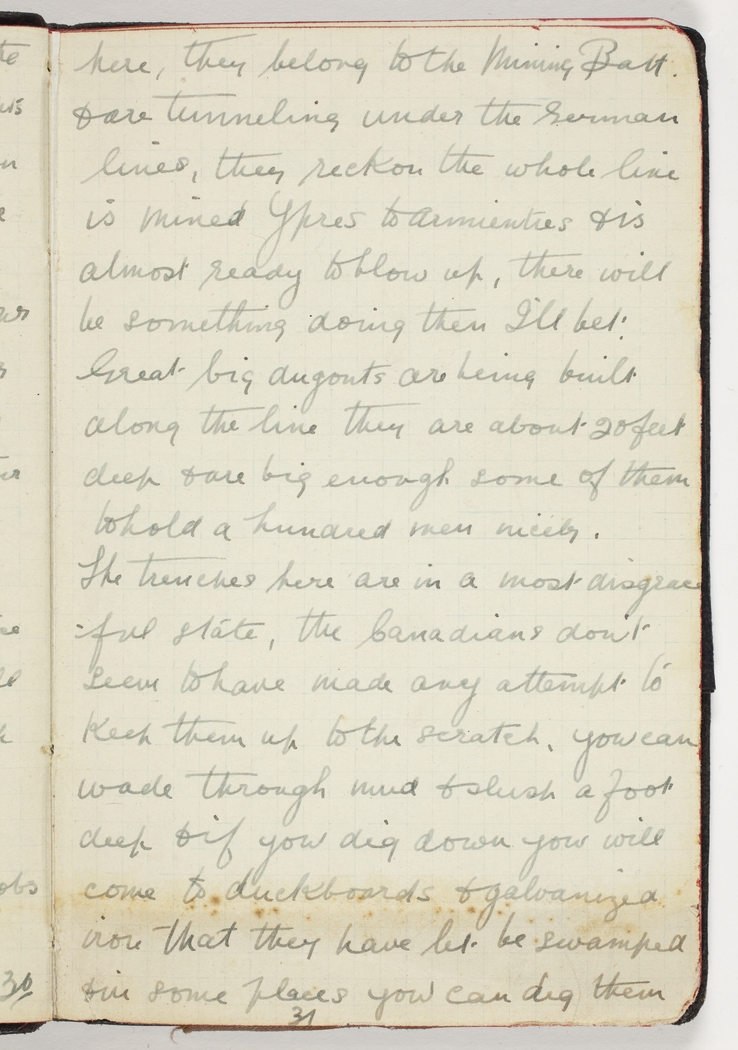 here, they belong to the Mining Batt.
& are tunneling under the German
lines, they reckon the whole line
is mined Ypres to Armientres & is
almost ready to blow up, there will
be something doing then I'll bet.
Great big dugouts are being built
along the line they are about 20 feet
deep & are big enough some of them
to hold a hundred men nicely.
The trenches here are in a most disgrace
-ful state, the Canadians don't
seem to have made any attempt to
keep them up to the scratch, you can
wade through mud & slush a foot
deep & if you dig down you will
come to duckboards & galvanized
iron that they have let be swamped
& in some places you can dig them
31
30